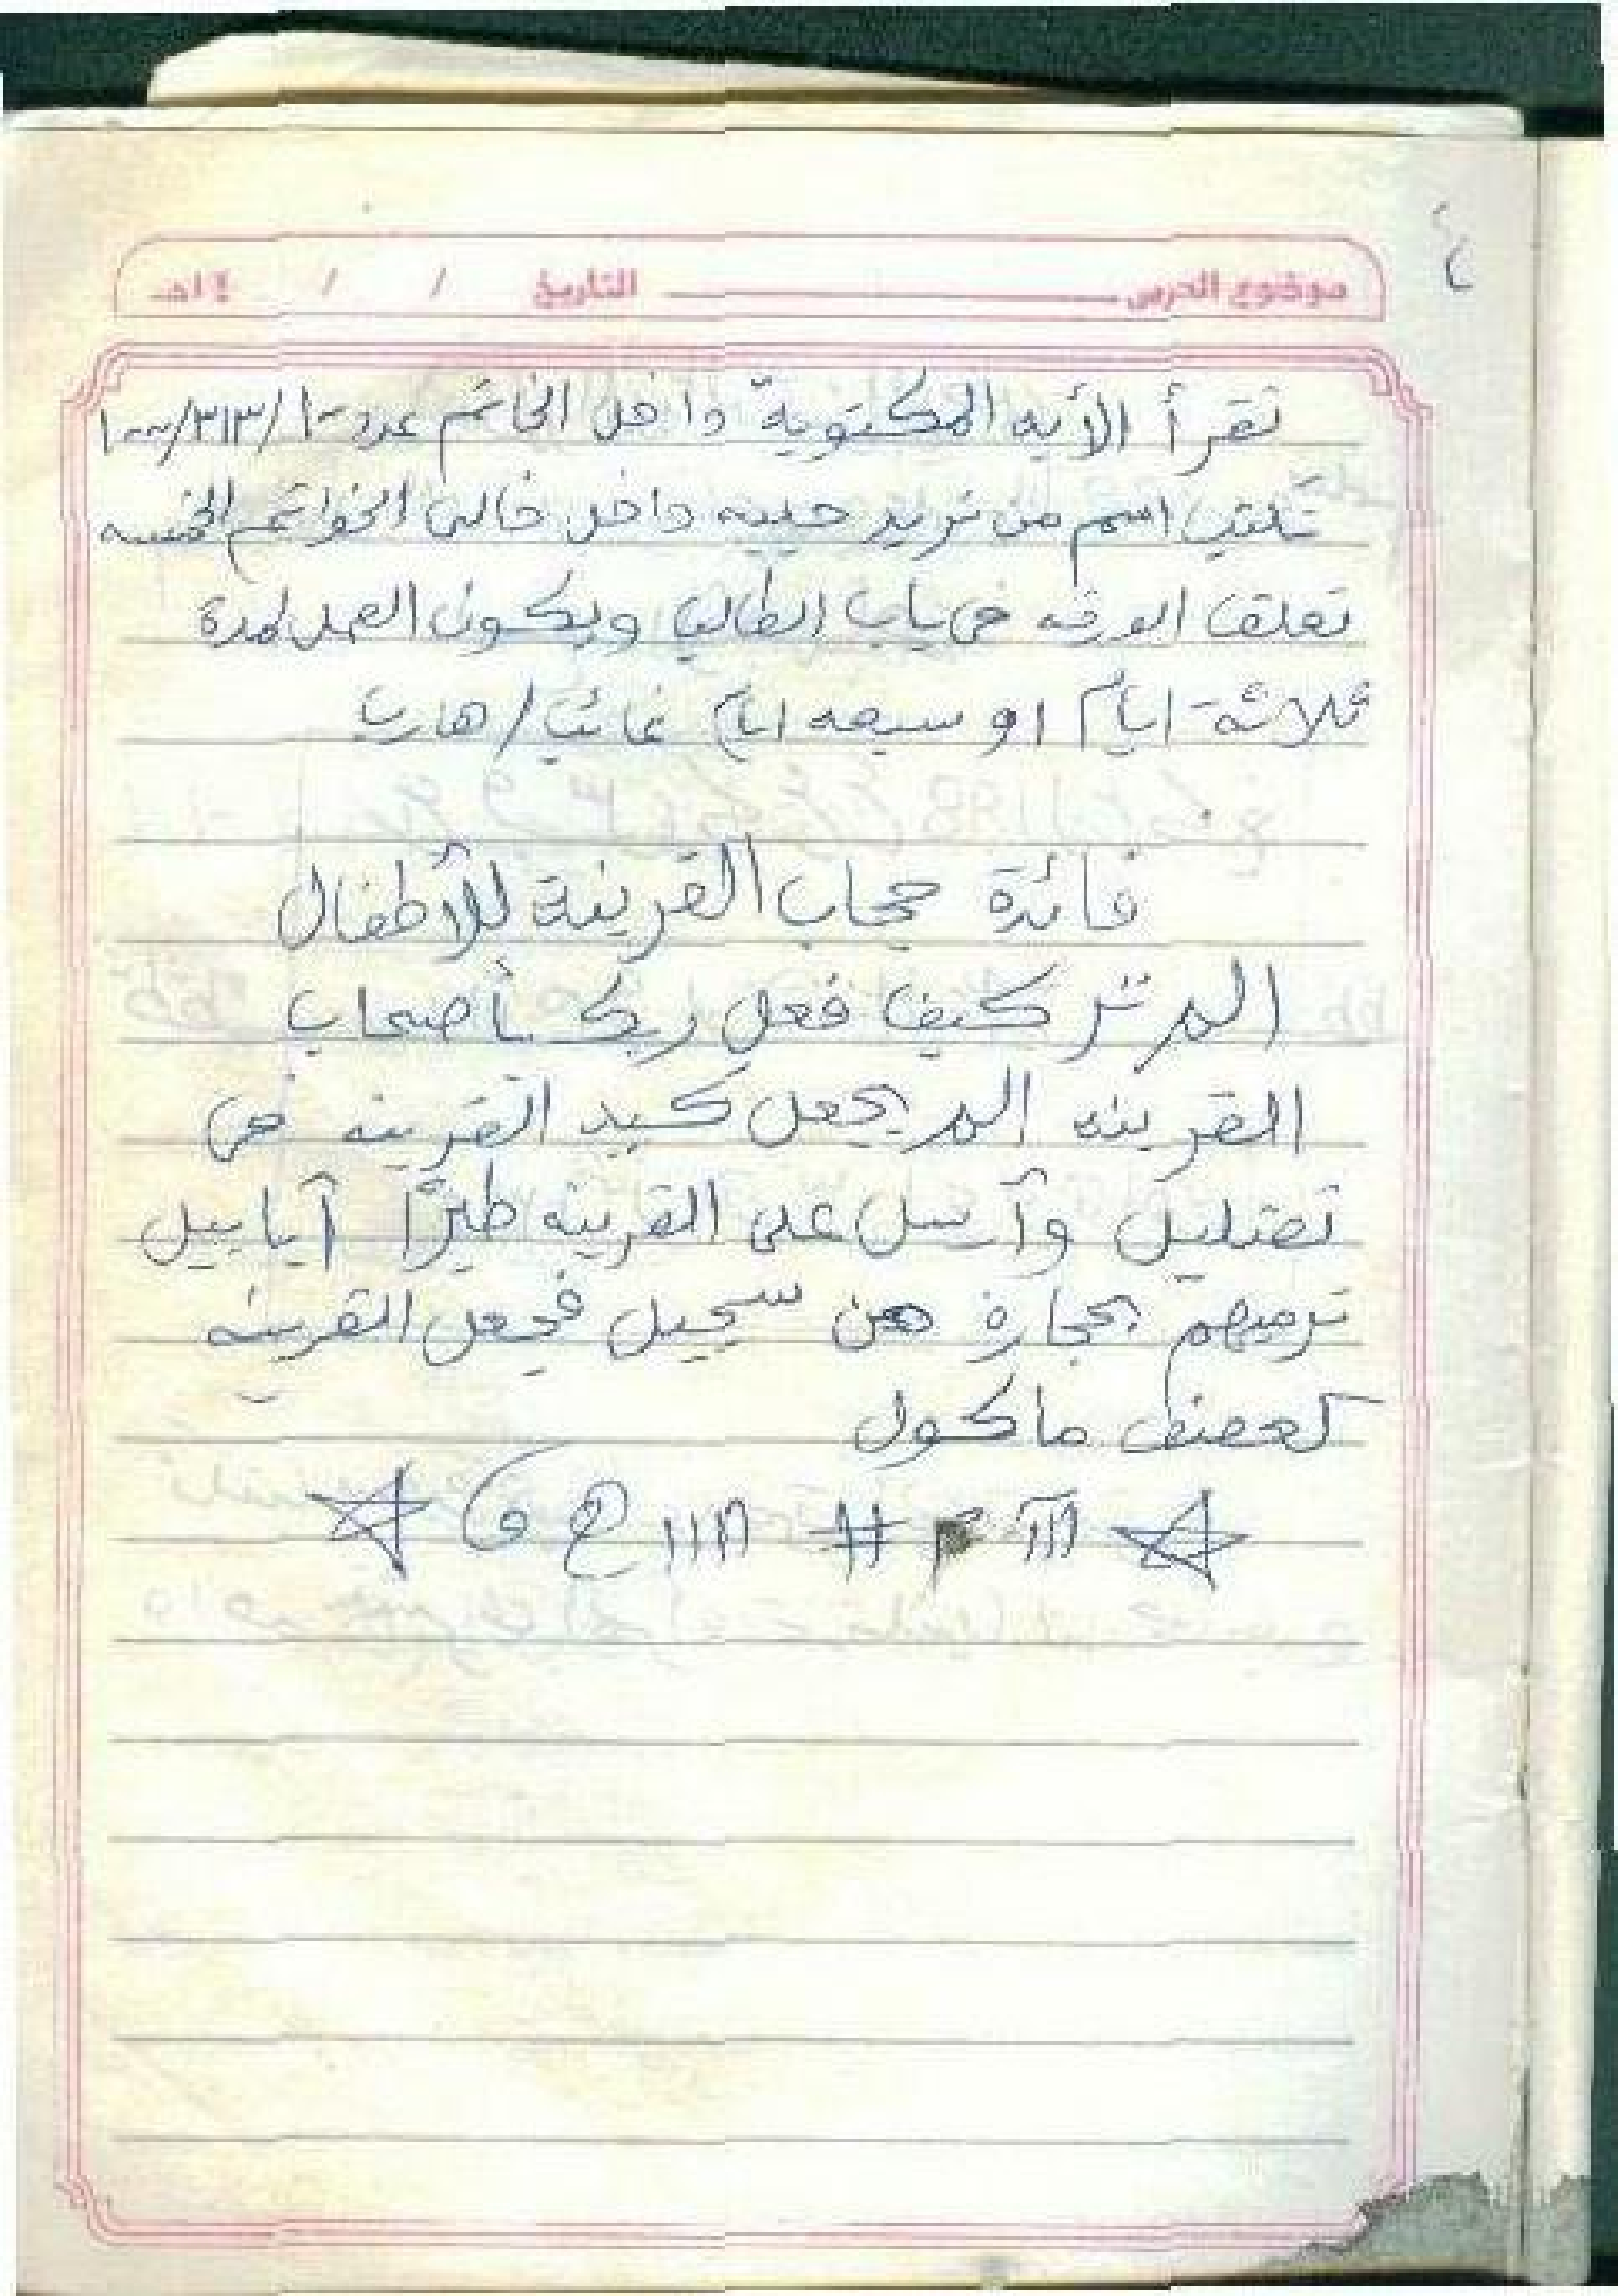 موضوع الدرس التاريخ / / ١٤هـ
تقرأ الأيه المكتوبة داخل الخاتم عدد ١٠٠/٣١٣/١٠٠٠
تكتب اسم من تريد جلبه داخل خالى الخواتم الخمسه
تعلق الورقه فى باب الطالب ويكون العمل لمدة
ثلاثة ايام او سبعه ايام غائب / هارب
فائدة حجاب القرينة للأطفال
الم تر كيف فعل ربك بأصحاب
القرينه الم يجعل كيد القرينه فى
تضليل وآرسل على القرينه طيرًا آبابيل
ترميهم بحجارة من سجيل فجعل القرينه
كعصف ماكول